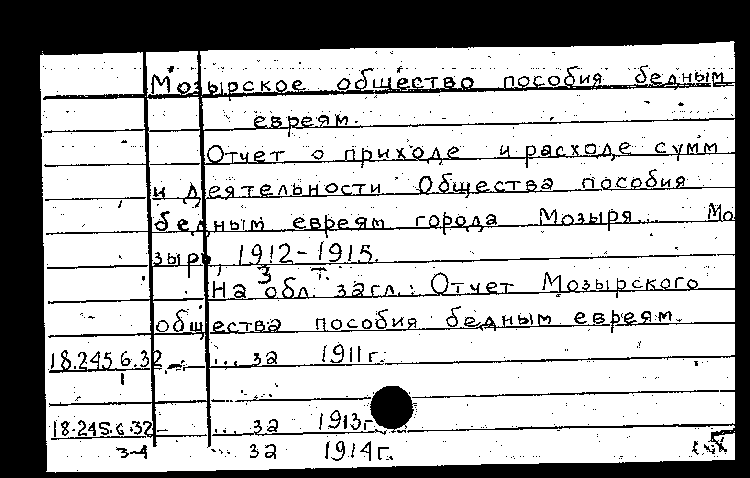 Мозырское общество пособия бедным
евреям.
Отчет о приходе и расходе сумм
и деятельности Общества пособия
бедным евреям города Мозыря... Мо
зырь, 1912-1915.
3 т.
На обл. загл.: Отчет Мозырского
общества пособия бедным евреям.
18.245.6.32 ... за 1911г.
1
18.245.6.32 ... за 1913г.
3-4 за 1914г.